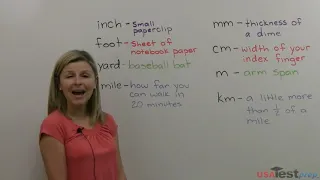 inch - Small
paperclip
foot - Sheet of
notebook paper
yard - baseball bat
mile - how far you
can walk in
20 minutes
mm - thickness of
a dime
cm - width of your
index finger
m - arm span
km - a little more
than ½ of a
mile
USATestprep